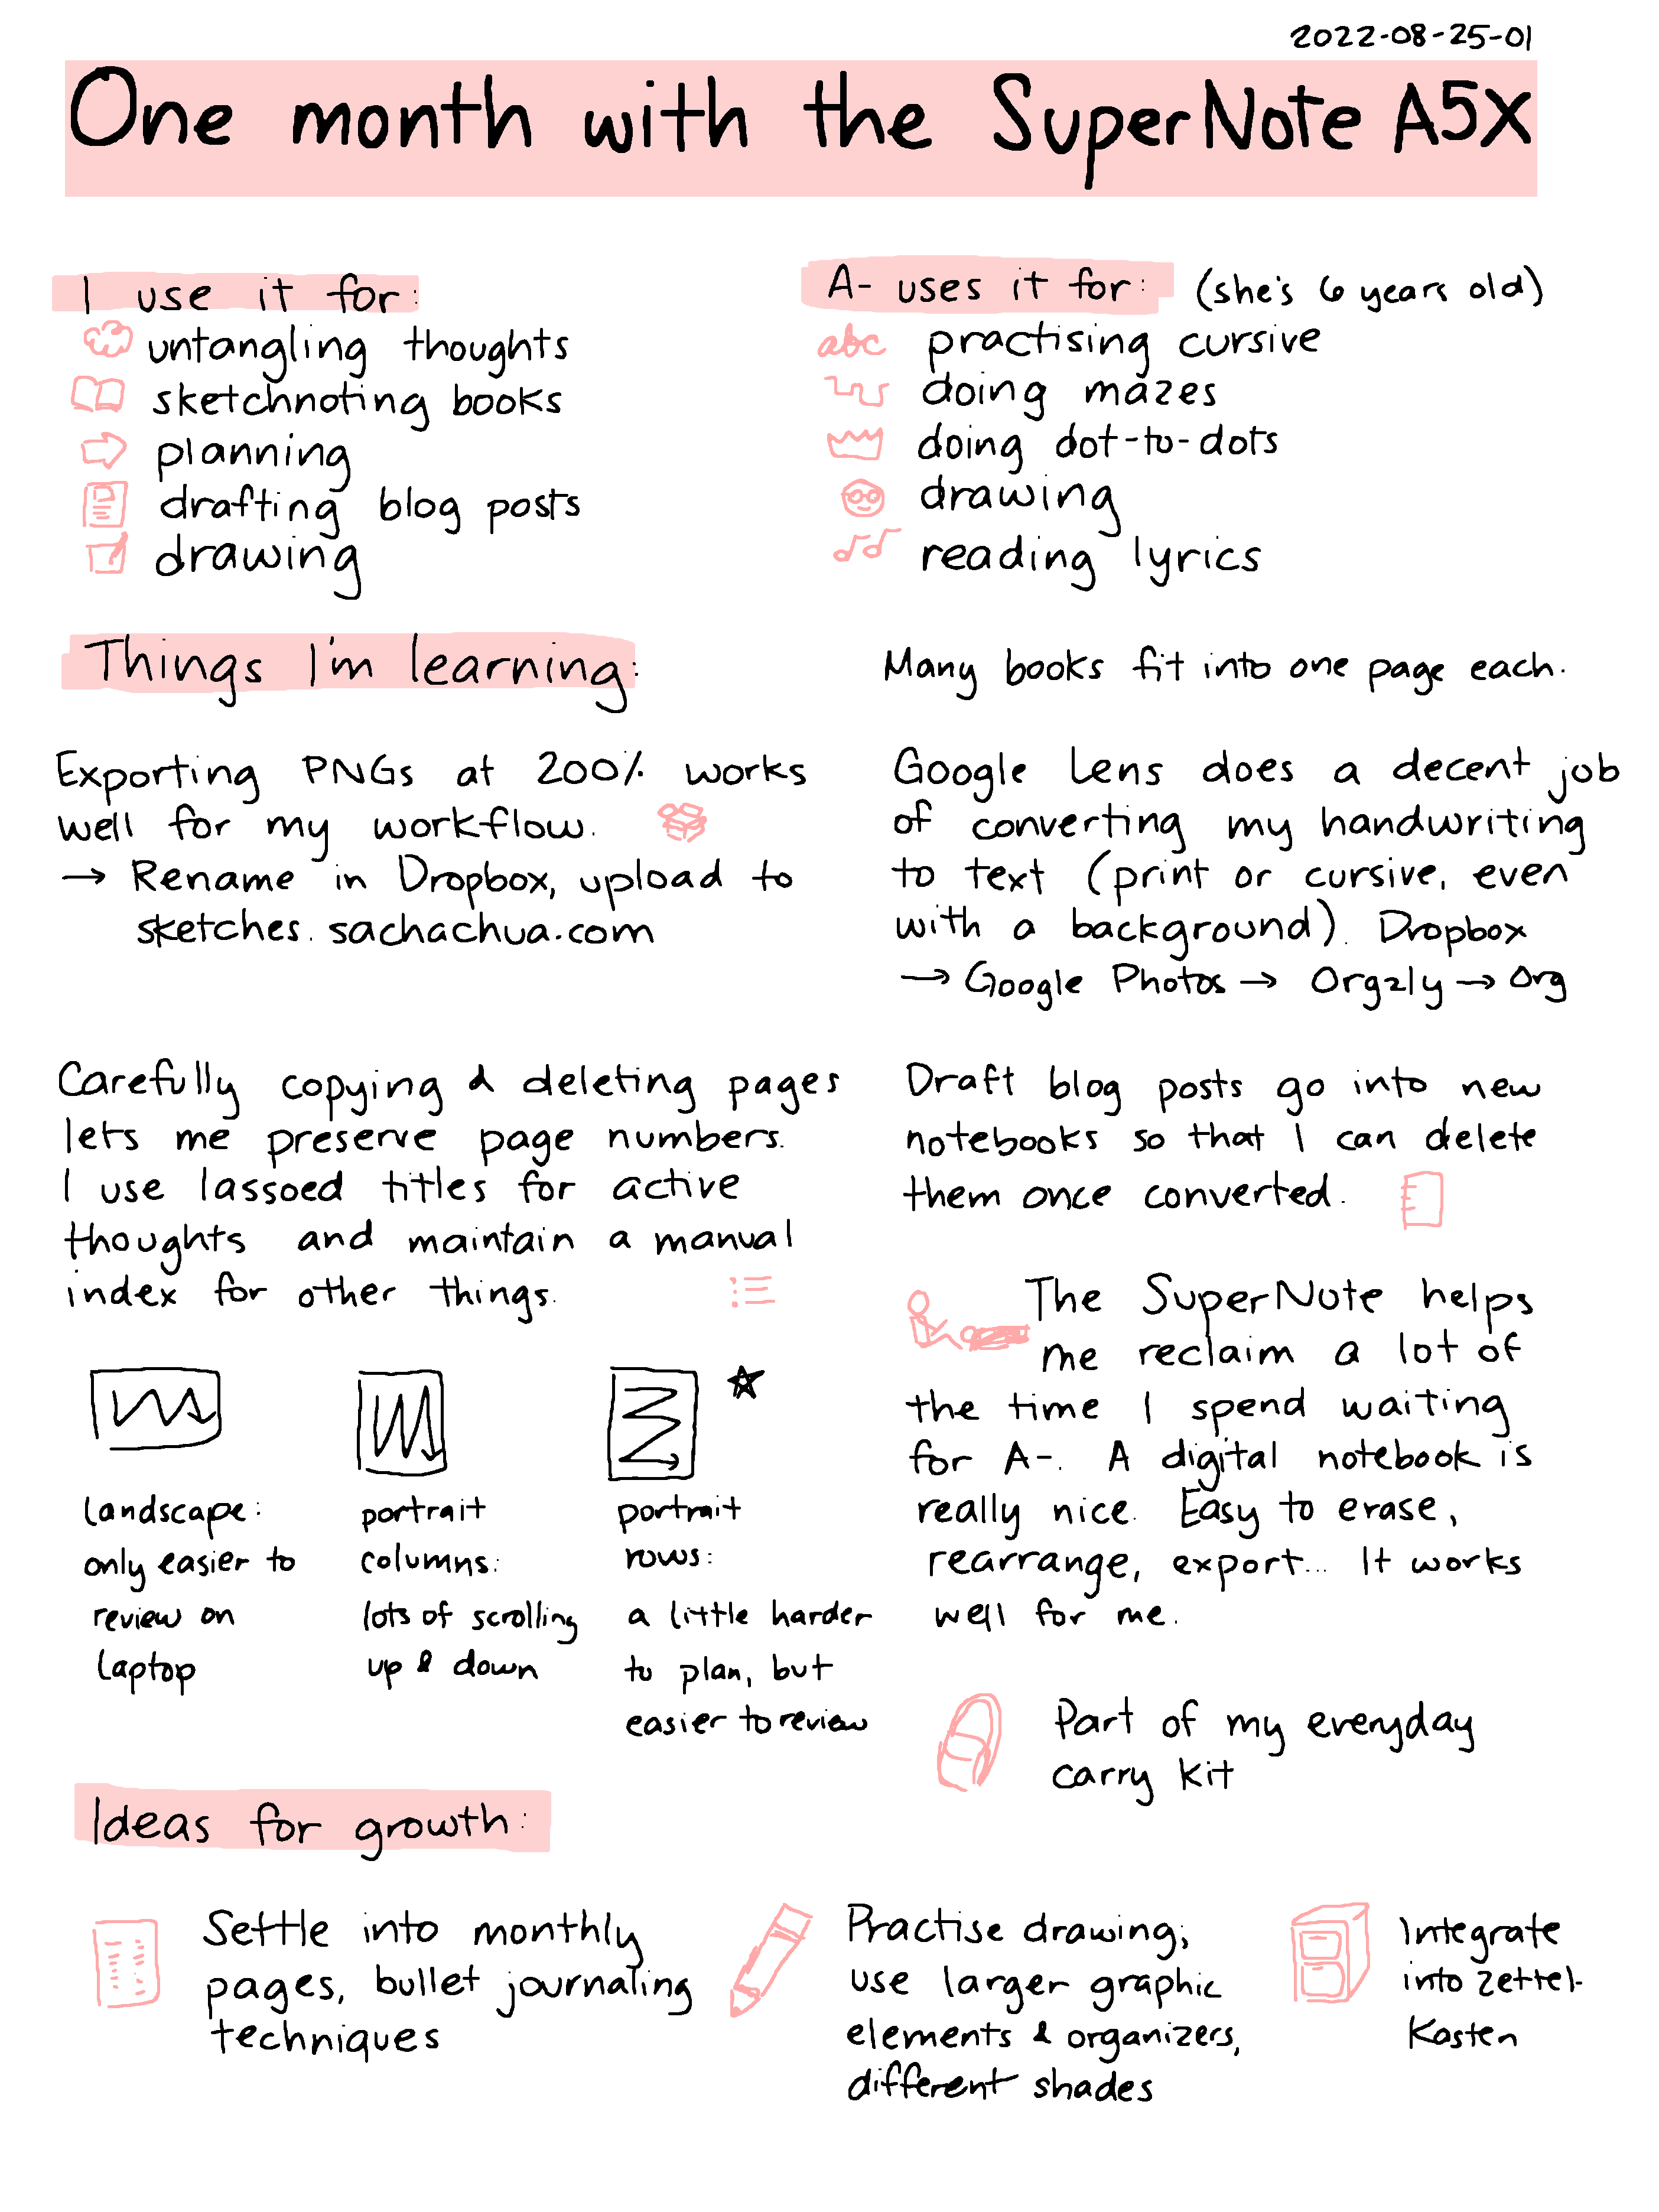 2022-08-25-01
One month with the SuperNote A5X
I use it for:
untangling thoughts
sketchnoting books
planning
drafting blog posts
drawing
A- uses it for: (she's 6 years old)
abc practising cursive
doing mazes
doing dot-to-dots
drawing
reading lyrics
Things I'm learning:
Exporting PNGs at 200% works
well for my workflow.
→ Rename in Dropbox, upload to
sketches.sachachua.com
Carefully copying & deleting pages
lets me preserve page numbers.
I use lassoed titles for active
thoughts and maintain a manual
index for other things.
landscape:
only easier to
review on
laptop
portrait
columns:
lots of scrolling
up & down
portrait
rows:
a little harder
to plan, but
easier to review
Many books fit into one page each.
Google Lens does a decent job
of converting my handwriting
to text (print or cursive, even
with a background). Dropbox
→ Google Photos → Orgzly → Org
Draft blog posts go into new
notebooks so that I can delete
them once converted.
The SuperNote helps
me reclaim a lot of
the time I spend waiting
for A-. A digital notebook is
really nice. Easy to erase,
rearrange, export... It works
well for me.
Part of my everyday
carry kit
Ideas for growth:
Settle into monthly
pages, bullet journaling
techniques
Practise drawing;
use larger graphic
elements & organizers,
different shades
Integrate
into Zettel-
Kasten